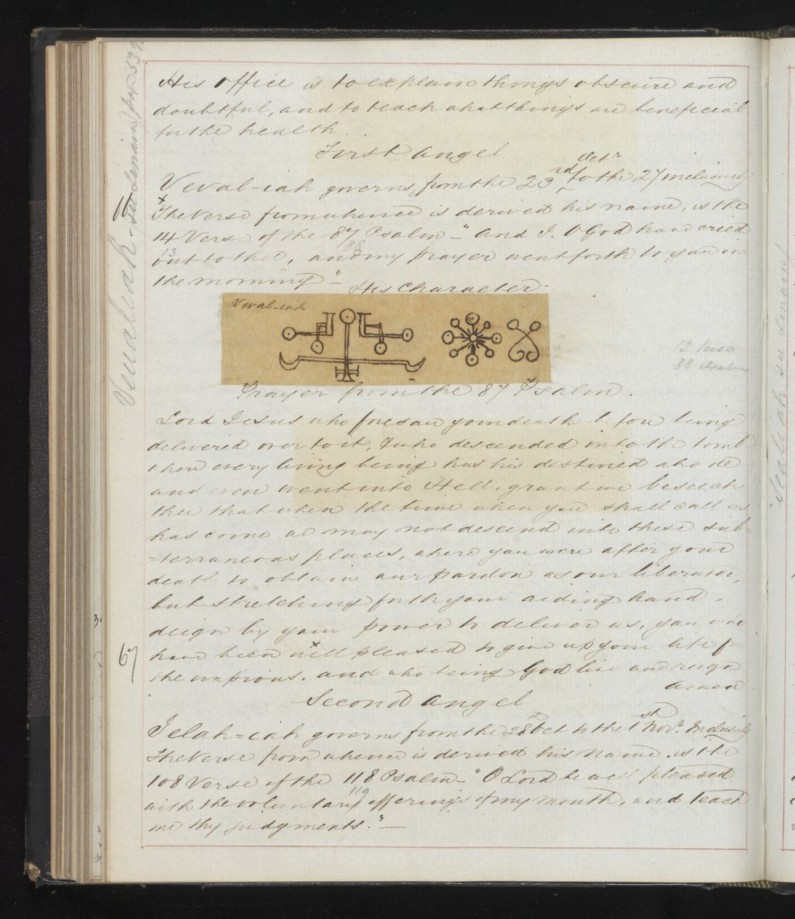 His office is to explain things obscure and
doubtful, and to teach what things are beneficial
for the health.
First Angel
Octr
Veval-iah governs from the 23rd to the 27 inclusively
The Verse from whence is derived his name, is the
14 Verse of the 87 Psalm - "And I. O God have cried
13 88
out to thee, and my prayer went forth to you in
the morning" -
His Character.
Veval-iah
13 Verse
88 Psalm
Prayer from the 87 Psalm.
Lord Jesus who foresaw your death before being
delivered over to it, & who descended into the tomb
where every living being has his destined abode
and even went into Hell, grant we beseech
thee that when the time when you shall call us
has come we may not descend into these sub-
-terraneous places, where you were after your
death to obtain our pardon as our liberator,
but stretching forth your aiding hand,
deign by your power to deliver us, you who
have been well pleased to give up your life for
the impious. and who being God live and reign
Amen
67
Second Angel
Jelah-iah governs from the 28 Oct to the 1st Novr. Inclusively
The Verse from whence is derived his name, is the
108 Verse of the 118 Psalm - "O Lord be well pleased
119
with the voluntary offerings of my mouth, and teach
me thy judgments." -